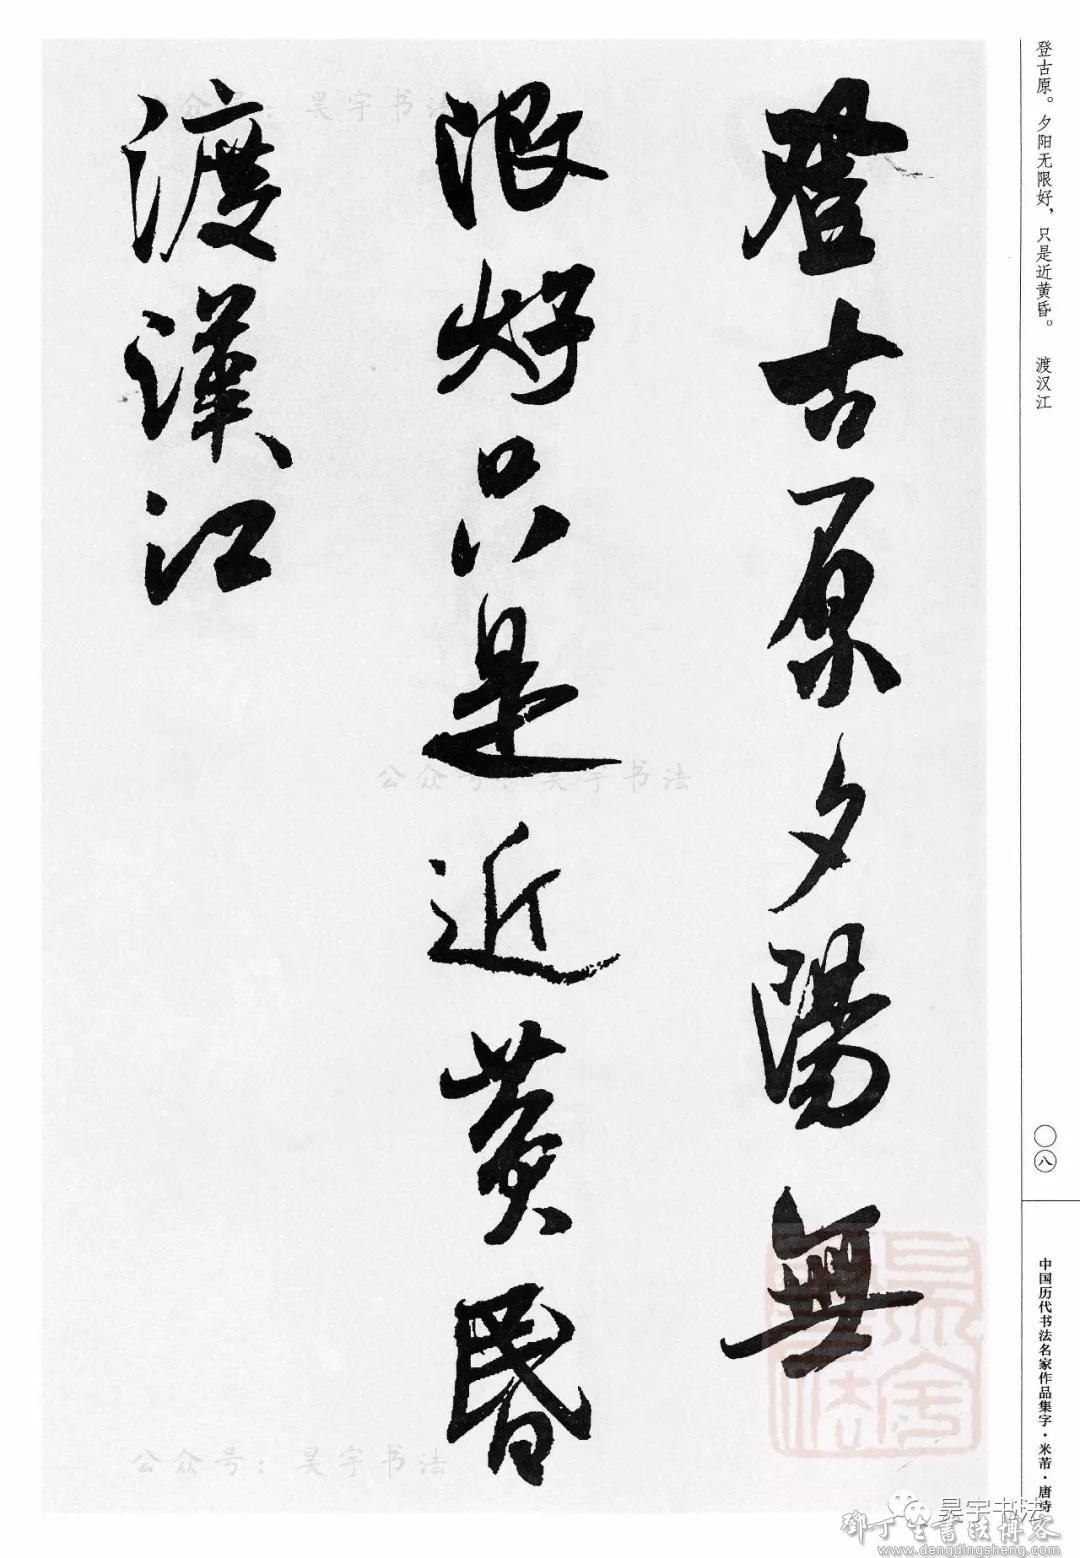 登古原。夕阳无限好，只是近黄昏。 渡汉江
登古原夕陽無
限好只是近黄昏
渡漢江
〇八
中国历代书法名家作品集字·米芾·唐诗
公众号：昊宇书法
公众号：昊宇书法
公众号：昊宇书法
昊宇书法
昊宇书法
鄧丁生書法博客
www.dengdingsheng.com